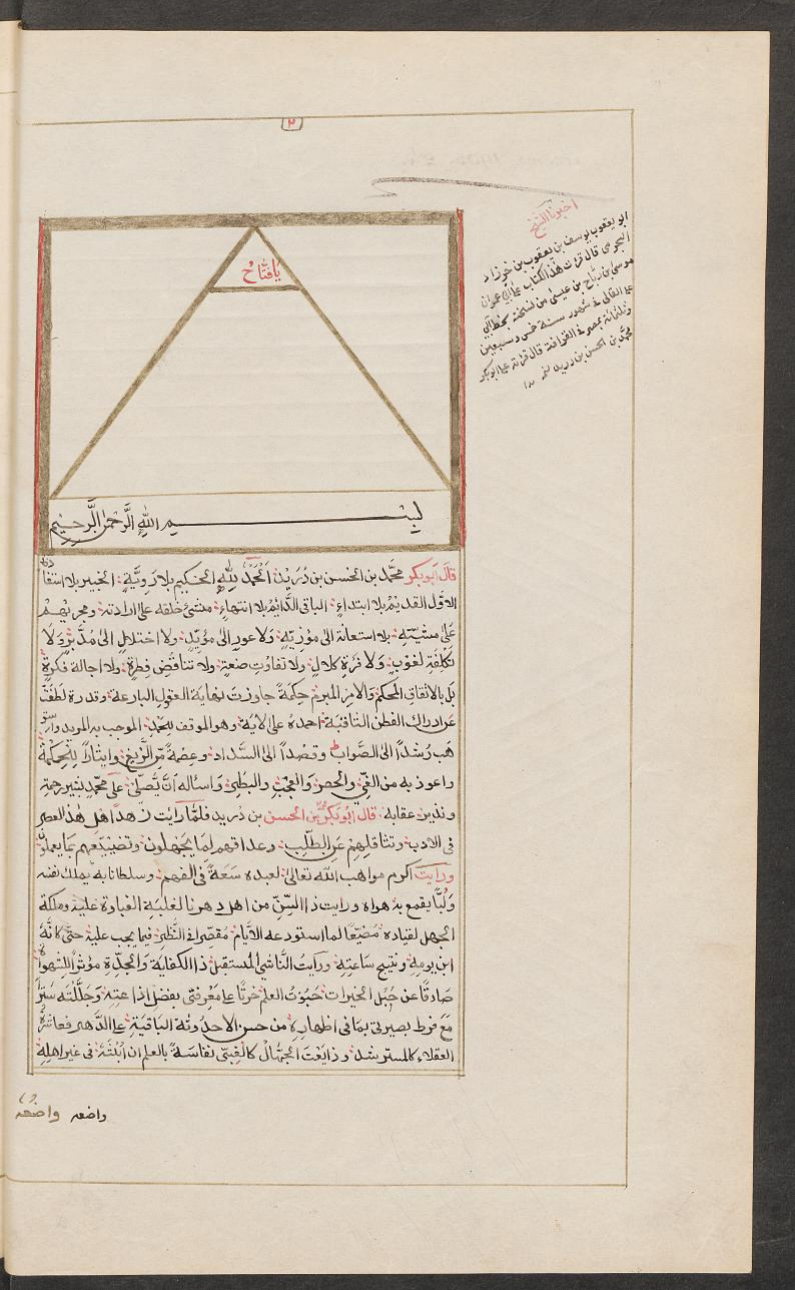 ٢
اخبرنا الشيخ
ابو يعقوب يوسف بن يعقوب بن خرزاد
النجرمى قال قرئت هذا الكتاب على ابى عمران
موسى بن رباح بن عيسى من نسخة بخط ابى
على القالى فى شهور سنة خمس وسبعين
وثلثمائة بمصر فى القرافة قال قراته على ابو بكر
محمد بن الحسن بن دريد
يَا فَتَّاحُ
بِسْمِ اللهِ الرَّحْمٰنِ الرَّحِيْمِ
قال ابو بكر محمّد بن الحسن بن دُرَيْد اَلْحَمْدُ لِلّٰهِ الحكيم بلا رَوِيَّةٍ الخبير بلا استفادة
الاوّل القديمُ بلا ابتداءٍ الباقى الدَّائِمُ بلا انتهاءٍ منشئ خلقه على ارادته ومجريهم
على مشيّته بلا استعانة الى مؤزرٍ ولا عوزٍ الى مؤيّدٍ ولا اختلالٍ الى مُدَبِّرٍ وَلَا
تَكْلِفَةِ لغوبٍ ولا فترة كلالٍ ولا تفاوُتِ صنعةٍ ولا تناقُضِ فِطرةٍ ولا اجالة فكرةٍ
بل بالاتقان المحكم وَالامر المبرم حِكمَةً جاوزت نهاية العقول البارعة وقدرة لطفت
عن ادراك الفطن الثاقبة احمدهُ على آلائه وهو الموقف للحمد الموجب به المزيد واستو
هب رُشداً الى الصَّواب وقصداً الى السَّداد وعِصْمةً مِّن الزَّيغ وايثاراً لِلْحِكمَة
واعوذ به من العِىّ والحصر والعُجْب والبطر وَاسأله اَنْ يُّصلّى على محمّدٍ بشير رحمته
ونذير عقابه قال ابو بكر محمد بن الحسن بن دريد فلمّا رايت زهد اهل هٰذا العصر
فى الادب وتثاقلهم عن الطلب وعداوتهم لِمَا يَجْهَلون وتضييعهم لما يعملون
ورايت اكرم مواهب الله تعالى لعبده سَعَةً فى الفهم وسلطانا به يملك نفسه
وَلُبًّا يقمع به هواه ورايت ذا السِّنّ من اهل دهرنا لغلبة الغباوة عليه وملكة
الجهل لقياده مُضَيِّعًا لما استودعه الايّام مُقصِّرا فى النَّظر فيما يجب عليه حتّى كانّه
ابن يومه ونتيج ساعته ورايتُ النّاشئ المستقبل ذا الكفاية وَالجدّة مؤثراً للشهوات
صادفًا عن سُبُل الخيرات حَبَوْتُ العلم خزنًا على معرفتى بفضل اذاعته وجلّلته سَتْراً
مَعَ فرط بصيرتى بما فى اظهاره من حسن الاحدوثة الباقية على الدَّهر فعاشرتُ
العقلاء كالمسترشد ودايَنْتُ الجهّال كالغبىّ نفاسةً بالعلم ان اَبُثَّهُ فى غير اهله
واضعه واضعه